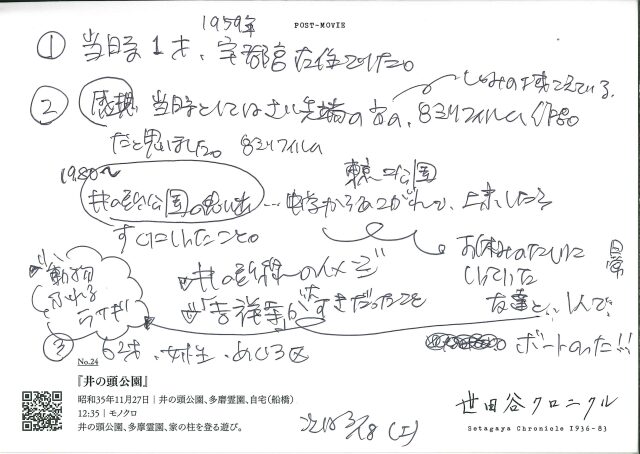 POST-MOVIE
1959年
① 当日寺1才、宇都宮在住でした。
② 感想 当日寺としてはさい先端の家の、8ミリフィルム作品
だと思いました。8ミリフィルム
1980〜
東京=公園
井の頭公園の思い出…中学からあこがれて、上京したら
すぐにしたこと。
お休みのたんびに
日常
いっていた
友達と、1人で、
ボートのった!!
動物
ふれる
ウサギ
井の頭線のイメージ
「吉祥寺」が大すきだったこと
③ 62才、女性、めぐろ区
No.24
『井の頭公園』
昭和35年11月27日|井の頭公園、多磨霊園、自宅(船橋)
12:35|モノクロ
井の頭公園、多摩霊園、家の柱を登る遊び。
世田谷クロニクル
Setagaya Chronicle 1936-83